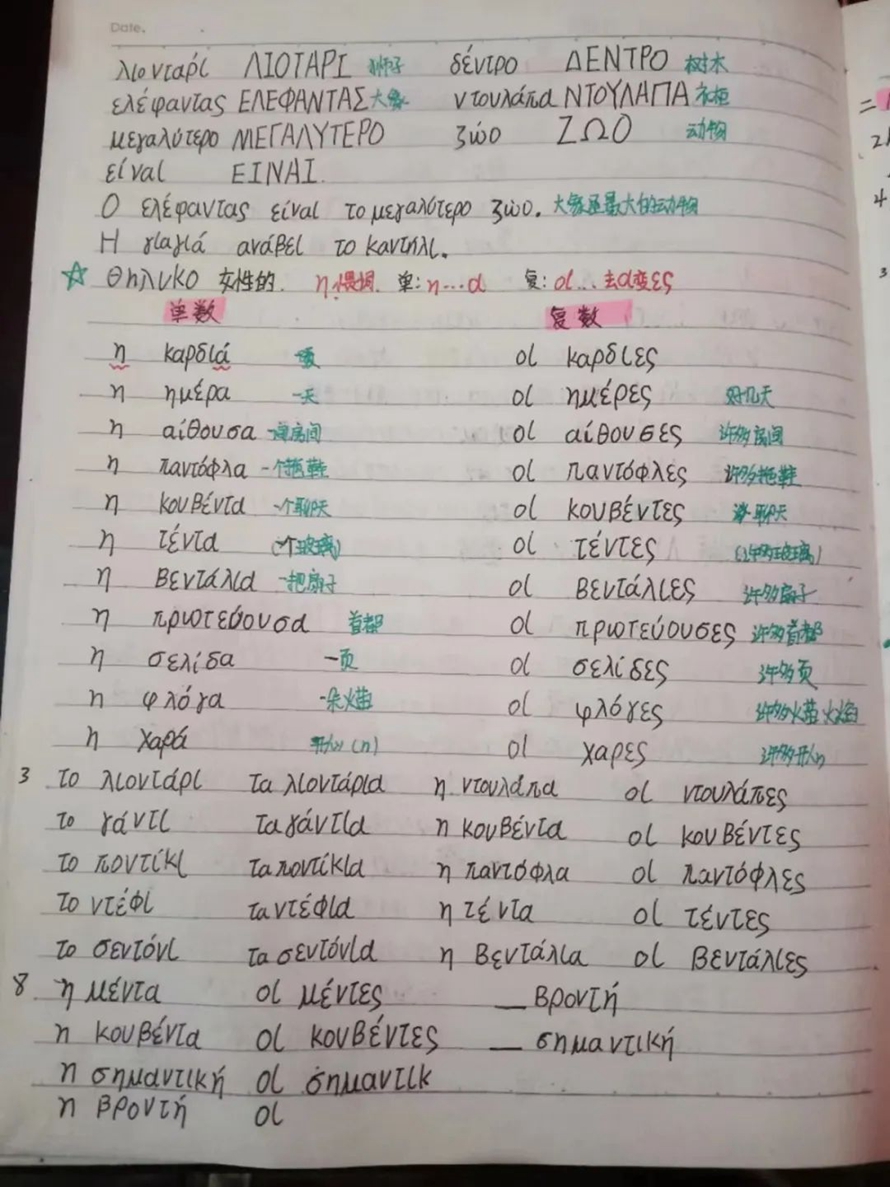 Date.
λιονταρί ΛΙΟΤΑΡΙ 狮子 δέντρο ΔΕΝΤΡΟ 树木
ελέφαντας ΕΛΕΦΑΝΤΑΣ 大象 ντουλάπα ΝΤΟΥΛΑΠΑ 衣柜
μεγαλύτερο ΜΕΓΑΛΥΤΕΡΟ ζώο ΖΩΟ 动物
είναι ΕΙΝΑΙ.
Ο ελέφαντας είναι το μεγαλύτερο ζώο. 大象是最大的动物
Η γιαγιά ανάβει το καντήλι.
☆ Θηλυκο 女性的. η 单: η...α 复: οι... 去α变ες
单数 复数
η καρδιά οι καρδιες
η ημέρα 一天 οι ημέρες 好几天
η αίθουσα 房间 οι αίθουσες 许多房间
η παντόφλα 一个拖鞋 οι παντόφλες 许多拖鞋
η κουβέντα 一个聊天 οι κουβέντες 聊天
η τέντα (一个玻璃) οι τέντες (许多玻璃)
η βεντάλια 一把扇子 οι βεντάλιες 许多扇子
η πρωτεύουσα 首都 οι πρωτεύουσες 许多首都
η σελίδα 一页 οι σελίδες 许多页
η φλόγα 一朵火苗 οι φλόγες 许多火苗火焰
η χαρά 开心(n) οι χαρες 许多开心
3 το λιοντάρι τα λιοντάρια η ντουλάπα οι ντουλάπες
το γάντι τα γάντια η κουβέντα οι κουβέντες
το ποντίκι τα ποντίκια η παντόφλα οι παντόφλες
το ντέφι τα ντέφια η τέντα οι τέντες
το σεντόνι τα σεντόνια η βεντάλια οι βεντάλιες
8 η μέντα οι μέντες __ βροντή
η κουβέντα οι κουβέντες __ σημαντική
η σημαντική οι σημαντικ
η βροντή οι